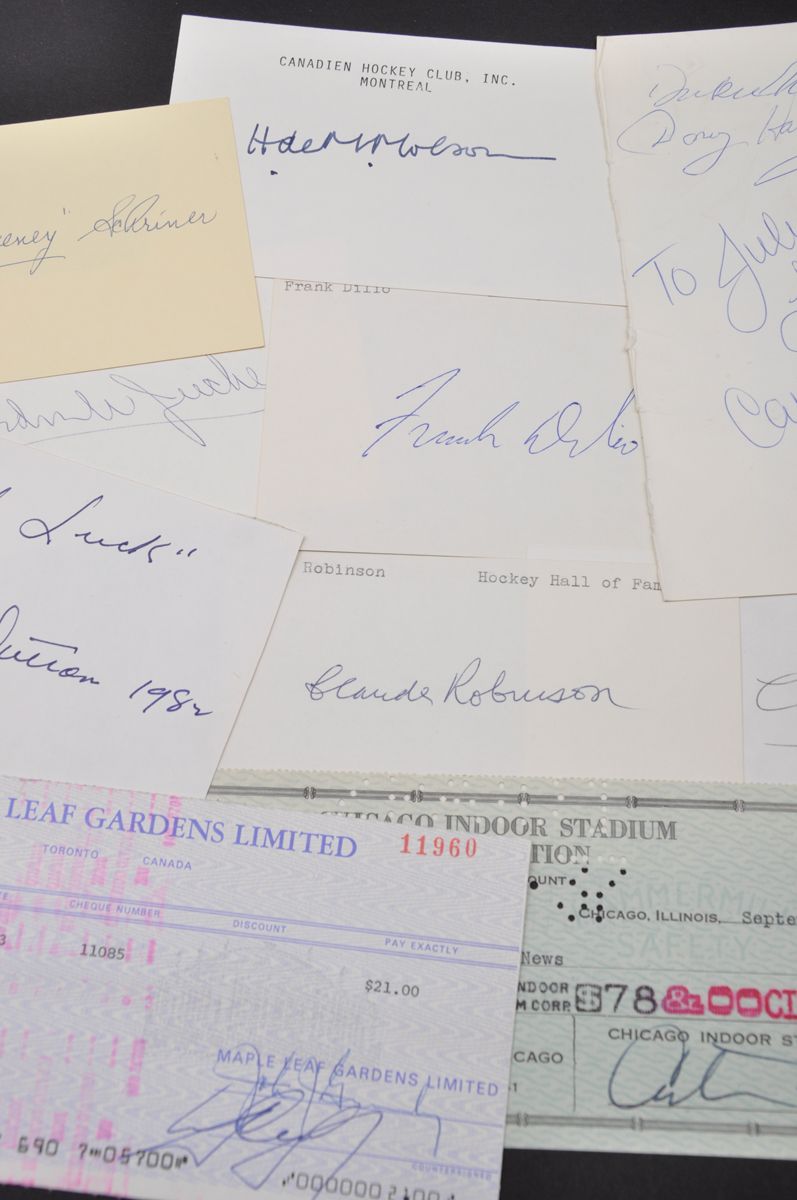 CANADIEN HOCKEY CLUB, INC.
MONTREAL
H de M Molson
eney" Schriner
Doug Ha
To July
Ca
Frank Dillo
Frank Dilio
Luck"
utton 1982
Robinson Hockey Hall of Fam
Claude Robinson
LEAF GARDENS LIMITED
11960
TORONTO CANADA
CHEQUE NUMBER
DISCOUNT
PAY EXACTLY
3 11085
$21.00
MAPLE LEAF GARDENS LIMITED
COUNTERSIGNED
690 05700
0000002100
CHICAGO INDOOR STADIUM
TION
OUNT
CHICAGO, ILLINOIS, Septe
SAFETY
News
NDOOR
M CORP. $78 & 00 C
CHICAGO INDOOR ST
CAGO